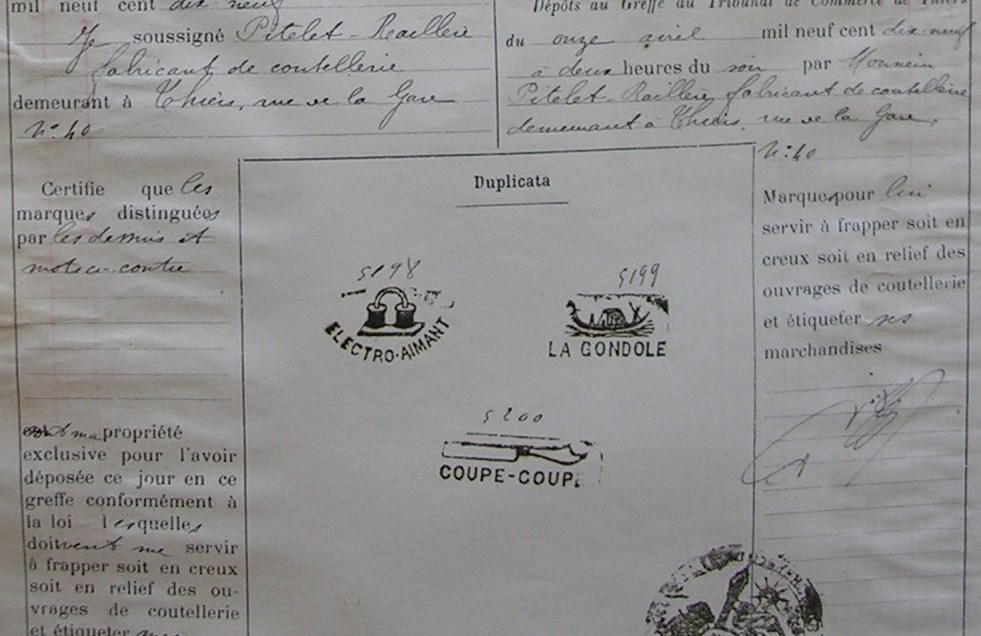 mil neuf cent dix-neuf
Je soussigné Pitelet-Raillère
fabricant de coutellerie
demeurant à Thiers, rue de la Gare
N° 40
Dépôts au Greffe du Tribunal de Commerce de Thiers
du onze avril mil neuf cent dix-neuf
à deux heures du soir par Monsieur
Pitelet-Raillère fabricant de coutellerie
demeurant à Thiers, rue de la Gare,
N: 40
Certifie que les
marques distinguées
par les dessins et
mots ci-contre
sont ma propriété
exclusive pour l'avoir
déposée ce jour en ce
greffe conformément à
la loi lesquelles
doivent me servir
à frapper soit en creux
soit en relief des ou-
vrages de coutellerie
et étiqueter mes
Duplicata
5198
ELECTRO-AIMANT
5199
LA GONDOLE
5200
COUPE-COUP
Marques pour lui
servir à frapper soit en
creux soit en relief des
ouvrages de coutellerie
et étiqueter ses
marchandises